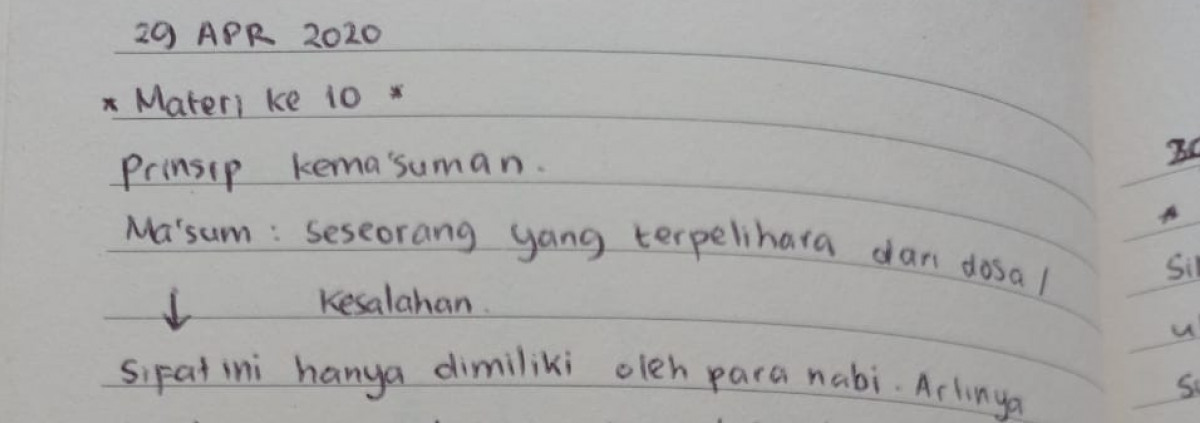 29 APR 2020
* Materi ke 10 *
Prinsip kema'suman.
Ma'sum : seseorang yang terpelihara dari dosa /
↓ kesalahan.
Sifat ini hanya dimiliki oleh para nabi. Artinya